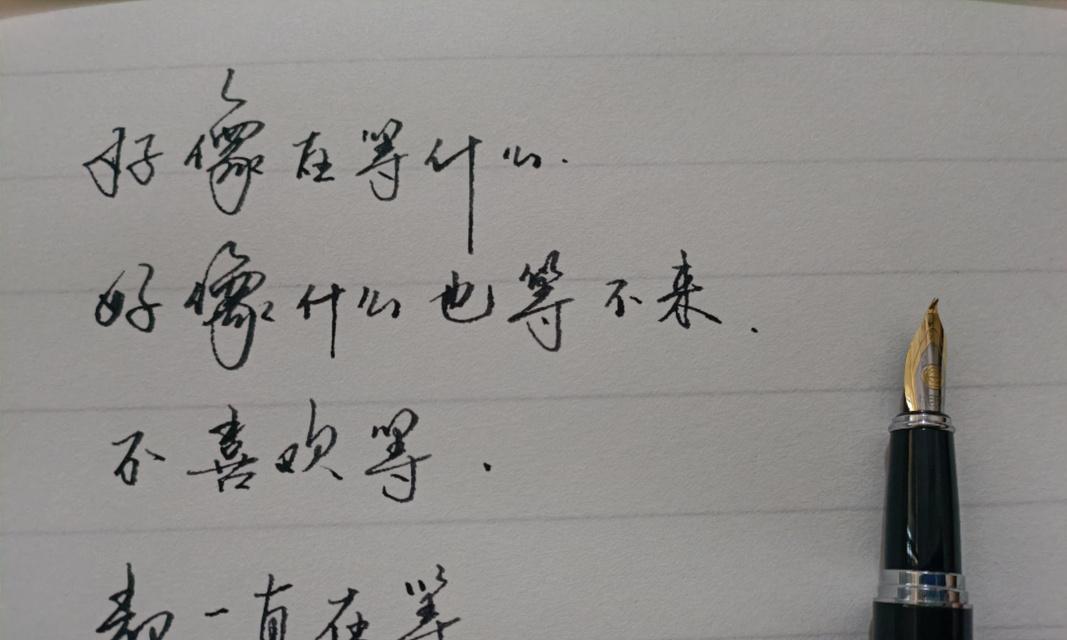 好像在等什么.
好像什么也等不来.
不喜欢等.
都一直在等